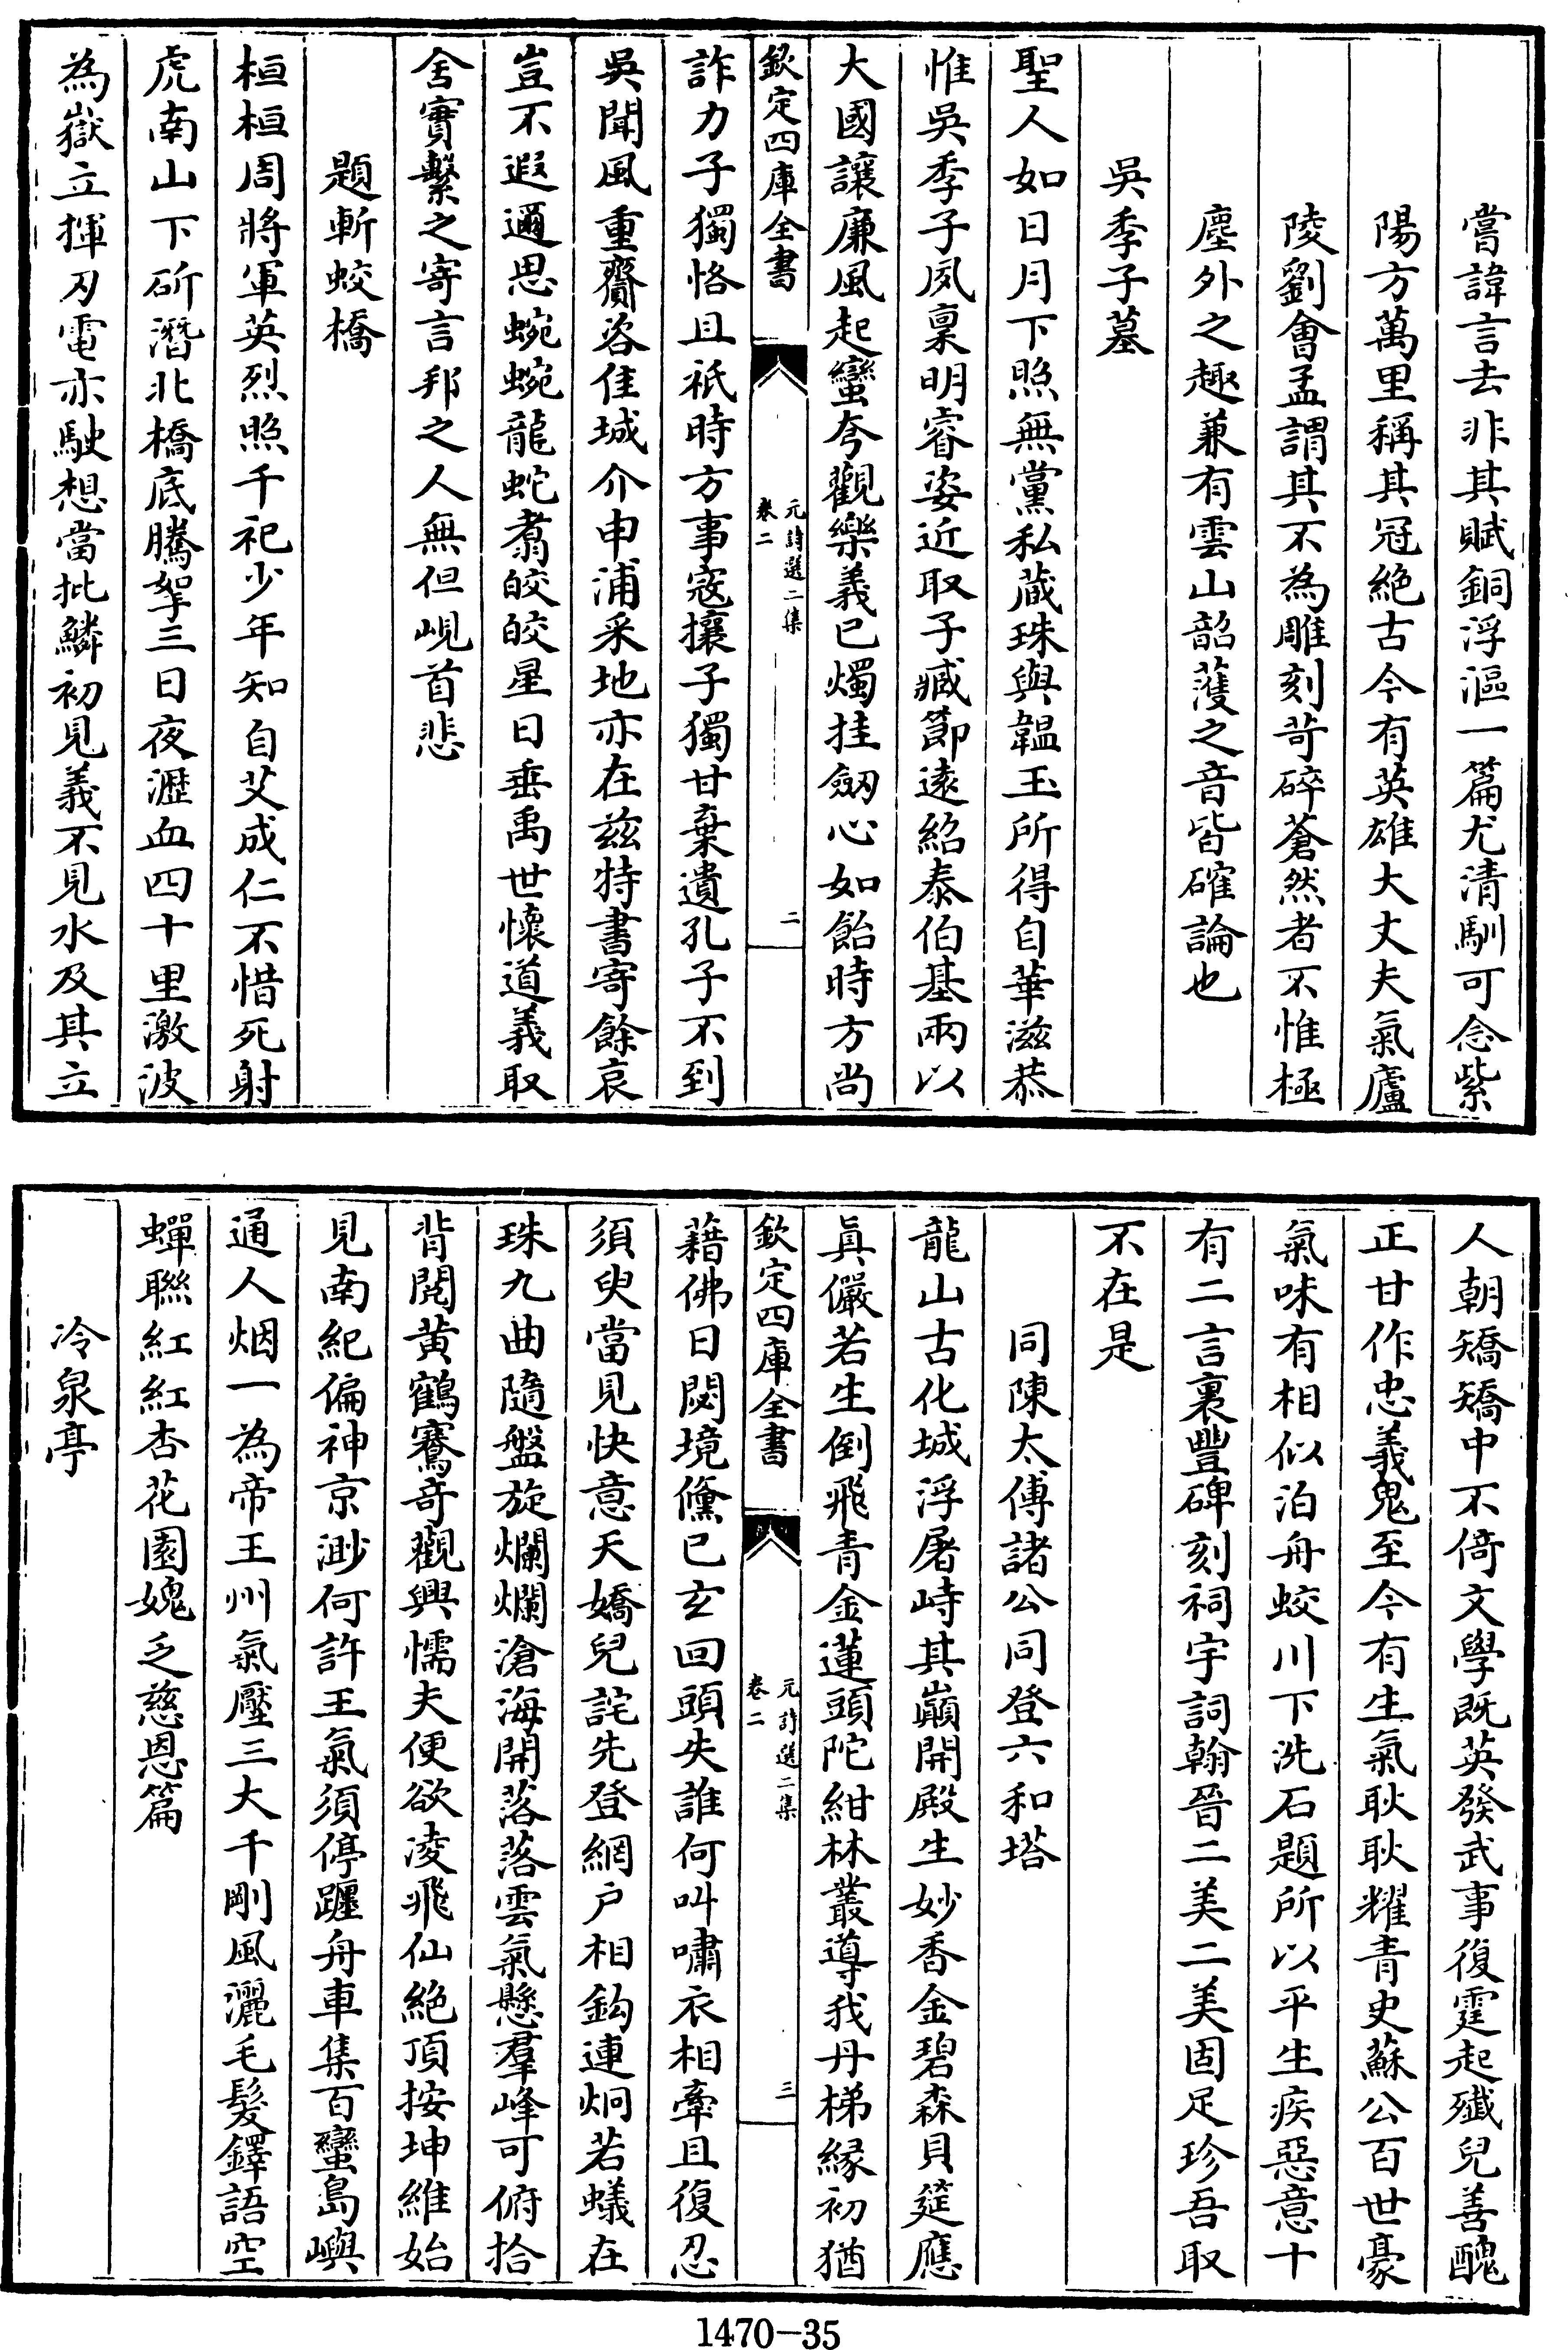 嘗諱言去非其賦銅浮漚一篇尤清馴可念紫
陽方萬里稱其冠絶古今有英雄大丈夫氣廬
陵劉會孟謂其不為雕刻苛碎蒼然者不惟極
塵外之趣兼有雲山韶濩之音皆確論也
吳季子墓
聖人如日月下照無黨私蔵珠與韞玉所得自華滋恭
惟吳季子夙稟明睿姿近取子臧節逺紹泰伯基兩以
大國讓廉風起蠻夸觀樂義已燭挂劒心如飴時方尚
欽定四庫全書
元詩選二集
卷二
二
詐力子獨恪且祇時方事寇攘子獨甘棄遺孔子不到
吳聞風重齎咨佳城介申浦采地亦在兹特書寄餘哀
豈不遐邇思蜿蜿龍蛇翥皎皎星日垂禹世懷道義取
舍實繫之寄言邦之人無但峴首悲
題斬蛟橋
桓桓周將軍英烈照千祀少年知自艾成仁不惜死射
虎南山下斫潛北橋底騰拏三日夜瀝血四十里激波
為嶽立揮刃電亦駛想當批鱗初見義不見水及其立
人朝矯矯中不倚文學既英發武事復霆起殱兒善醜
正甘作忠義鬼至今有生氣耿耿耀青史蘇公百世豪
氣味有相似泊舟蛟川下洗石題所以平生疾惡意十
有二言裏豐碑刻祠宇詞翰晉二美二美固足珍吾取
不在是
同陳太傅諸公同登六和塔
龍山古化城浮屠峙其巔開殿生妙香金碧森貝筵應
真儼若生倒飛青金蓮頭陀紺林叢導我丹梯縁初猶
欽定四庫全書
元詩選二集
卷二
三
藉佛日閟境儵已玄回頭失誰何叫嘯衣相牽且復忍
須臾當見快意天嬌兒詫先登網户相鈎連炯若蟻在
珠九曲隨盤旋爛爛滄海開落落雲氣懸羣峰可俯拾
背閲黄鶴騫奇觀興懦夫便欲凌飛仙絶頂按坤維始
見南紀偏神京渺何許王氣須停躔舟車集百蠻島嶼
通人烟一為帝王州氣壓三大千剛風灑毛髮鐸語空
蟬聯紅紅杏花園媿乏慈恩篇
冷泉亭
1470-35